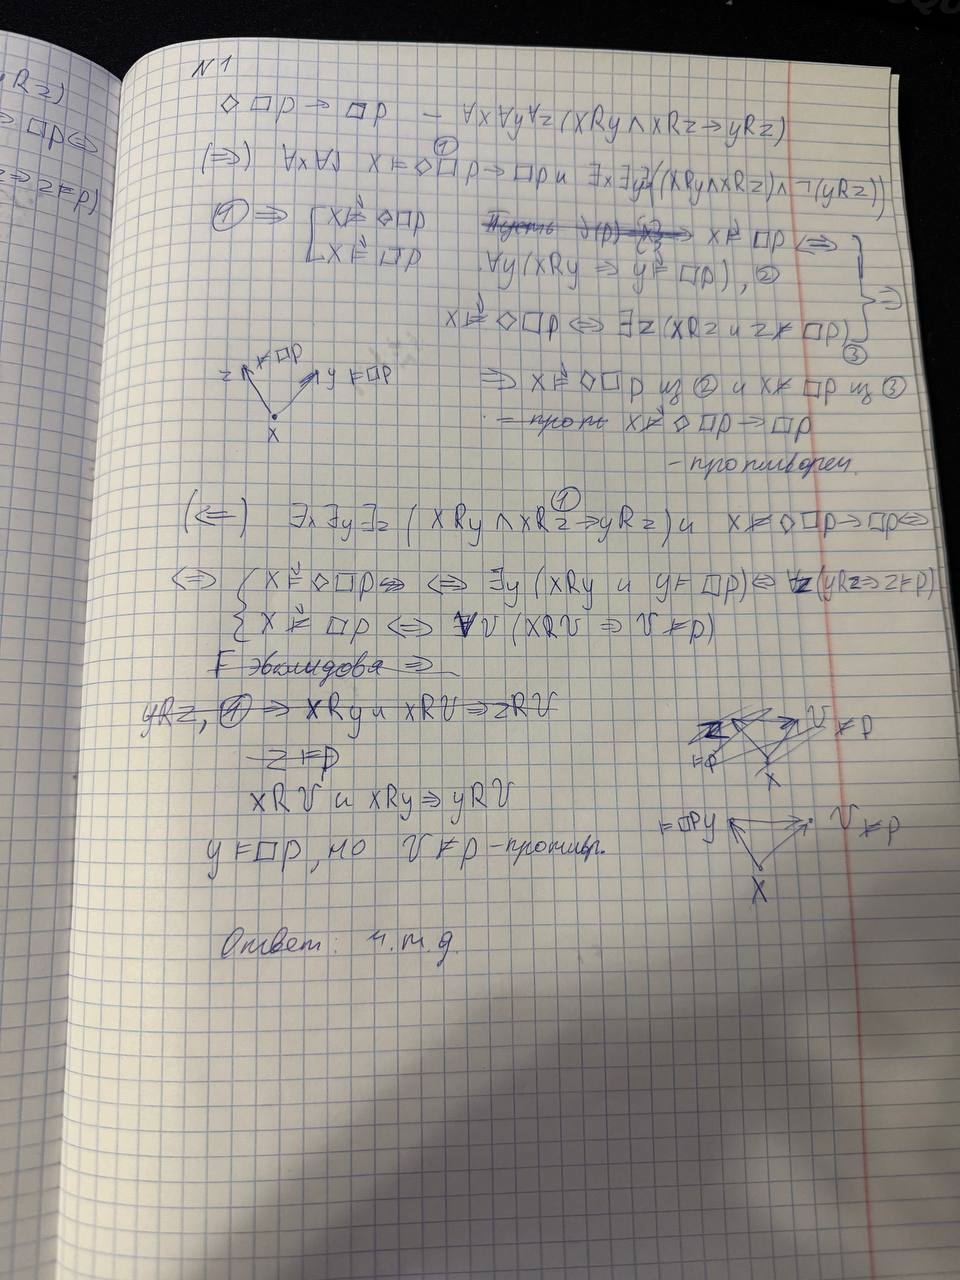 yRz)
⇒ □p⇔
z⇒z⊨p)
N1
◇□p→□p – ∀x∀y∀z(xRy∧xRz→yRz)
(⇒) ∀x∀ϑ x⊨◇□p→□p и ∃x∃y∃z((xRy∧xRz)∧¬(yRz))
①
① ⇒ [ x⊭◇□p
x⊨□p
Пусть ϑ(p) x⊨□p ⇔
∀y(xRy ⇒ y⊨□p), ②
x⊭◇□p ⇔ ∃z(xRz и z⊭□p) ③
} ⇒
z ⊭□p y ⊨□p
x
⇒ x⊨◇□p из ② и x⊭□p из ③
– проти x⊭◇□p→□p
– противореч.
(⇐) ∃x∃y∃z (xRy∧xRz→yRz) и x⊭◇□p→□p⇔
①
⇔ { x⊨◇□p ⇔ ∃y(xRy и y⊨□p)⇔ ∀z(yRz⇒z⊨p)
x⊭□p ⇔ ∀v(xRv ⇒ v⊭p)
F эвклидова ⇒
yRz, ① ⇒ xRy и xRv⇒zRv
z⊨p
xRv и xRy⇒yRv
y⊨□p, но v⊭p – против.
z v ⊭p
⊨p x
⊨□p y v ⊭p
x
Ответ: ч.т.д.